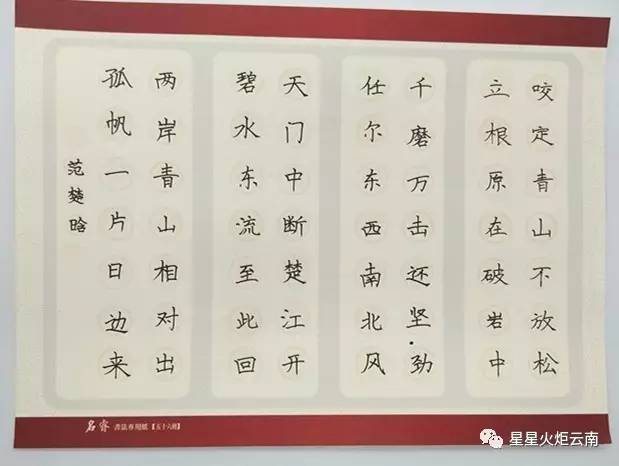 咬定青山不放松
立根原在破岩中
千磨万击还坚劲
任尔东西南北风
天门中断楚江开
碧水东流至此回
两岸青山相对出
孤帆一片日边来
范楚晗
名睿 書法專用紙【五十六格】
星星火炬云南